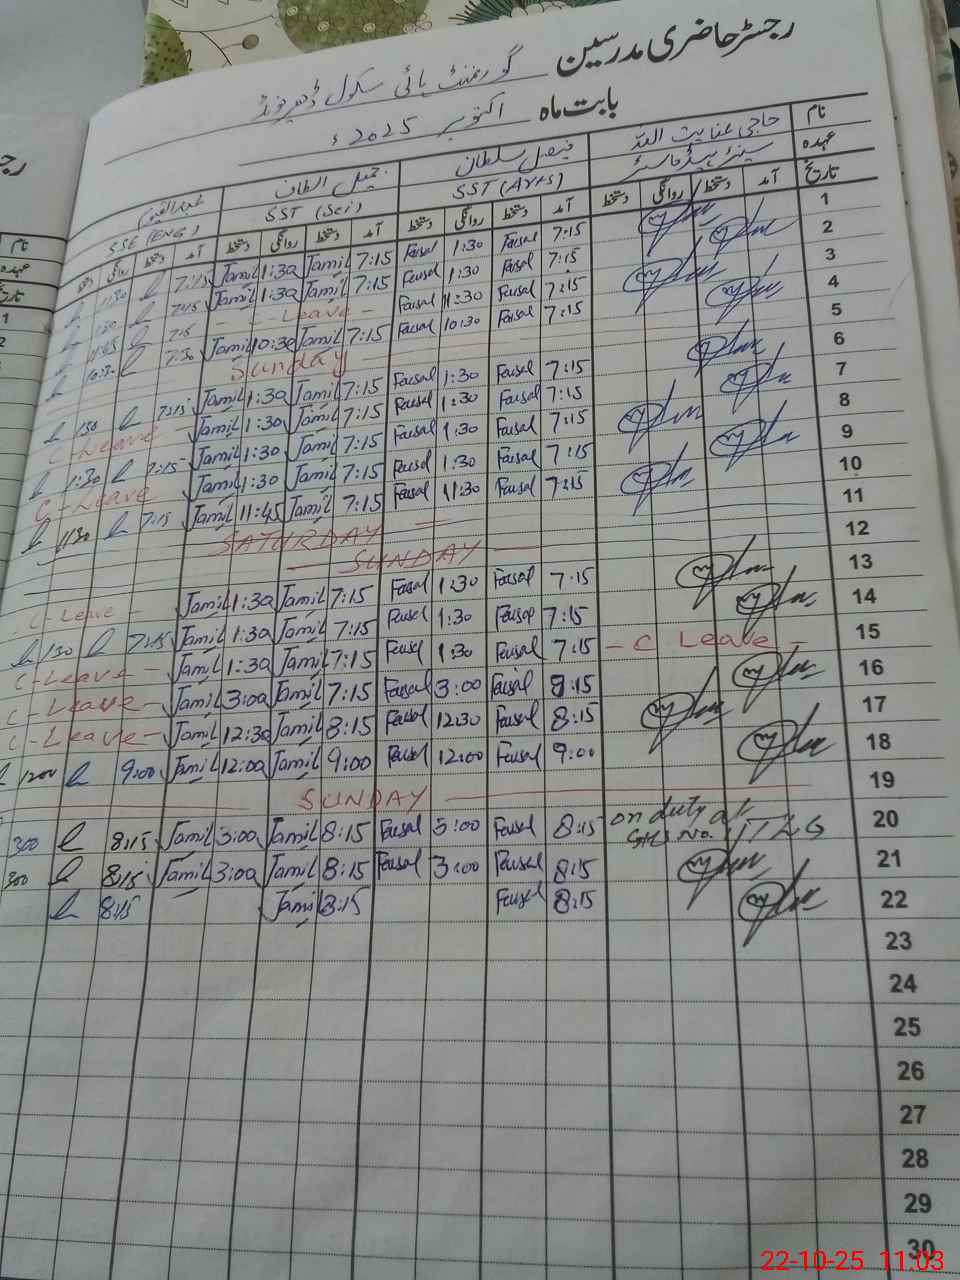 رجسٹر حاضری مدرسین گورنمنٹ ہائی سکول
بابت ماہ اکتوبر 2025ء
نام حاجی عنایت اللہ فیصل سلطان جمیل الطاف
عہدہ SST (Arts) SST (Sci) SSE (ENG)
تاریخ آمد دستخط روانگی دستخط آمد دستخط روانگی دستخط آمد دستخط روانگی دستخط آمد دستخط روانگی دستخط
1 7:15 Faisal 1:30 Faisal 7:15 Jamil 1:30 Jamil 7:15 1:30
2 7:15 Faisal 1:30 Faisal 7:15 Jamil 1:30 Jamil 7:15 1:30
3 7:15 Faisal 11:30 Faisal - C - Leave - 7:15
4 7:15 Faisal 10:30 Faisal 7:15 Jamil 10:30 Jamil 7:30
5 Sunday
6 7:15 Faisal 1:30 Faisal 7:15 Jamil 1:30 Jamil 7:15 1:30
7 7:15 Faisal 1:30 Faisal 7:15 Jamil 1:30 Jamil C - Leave -
8 7:15 Faisal 1:30 Faisal 7:15 Jamil 1:30 Jamil 7:15 1:30
9 7:15 Faisal 1:30 Faisal 7:15 Jamil 1:30 Jamil C - Leave
10 7:15 Faisal 11:30 Faisal 7:15 Jamil 11:45 Jamil 7:15 1130
11 SATURDAY
12 SUNDAY
13 7:15 Faisal 1:30 Faisal 7:15 Jamil 1:30 Jamil C - Leave -
14 7:15 Faisal 1:30 Faisal 7:15 Jamil 1:30 Jamil 7:15 130
15 - C Leave - 7:15 Faisal 1:30 Faisal 7:15 Jamil 1:30 Jamil C - Leave -
16 8:15 Faisal 3:00 Faisal 7:15 Jamil 3:00 Jamil C - Leave -
17 8:15 Faisal 12:30 Faisal 8:15 Jamil 12:30 Jamil C - Leave -
18 9:00 Faisal 12:00 Faisal 9:00 Jamil 12:00 Jamil 9:00 1200
19 SUNDAY
20 on duty at GHS No. 8:15 Faisal 3:00 Faisal 8:15 Jamil 3:00 Jamil 8:15 300
21 8:15 Faisal 3:00 Faisal 8:15 Jamil 3:00 Jamil 8:15 300
22 8:15 Faisal 8:15 Jamil 8:15
23
24
25
26
27
28
29
30
22-10-25 11:03